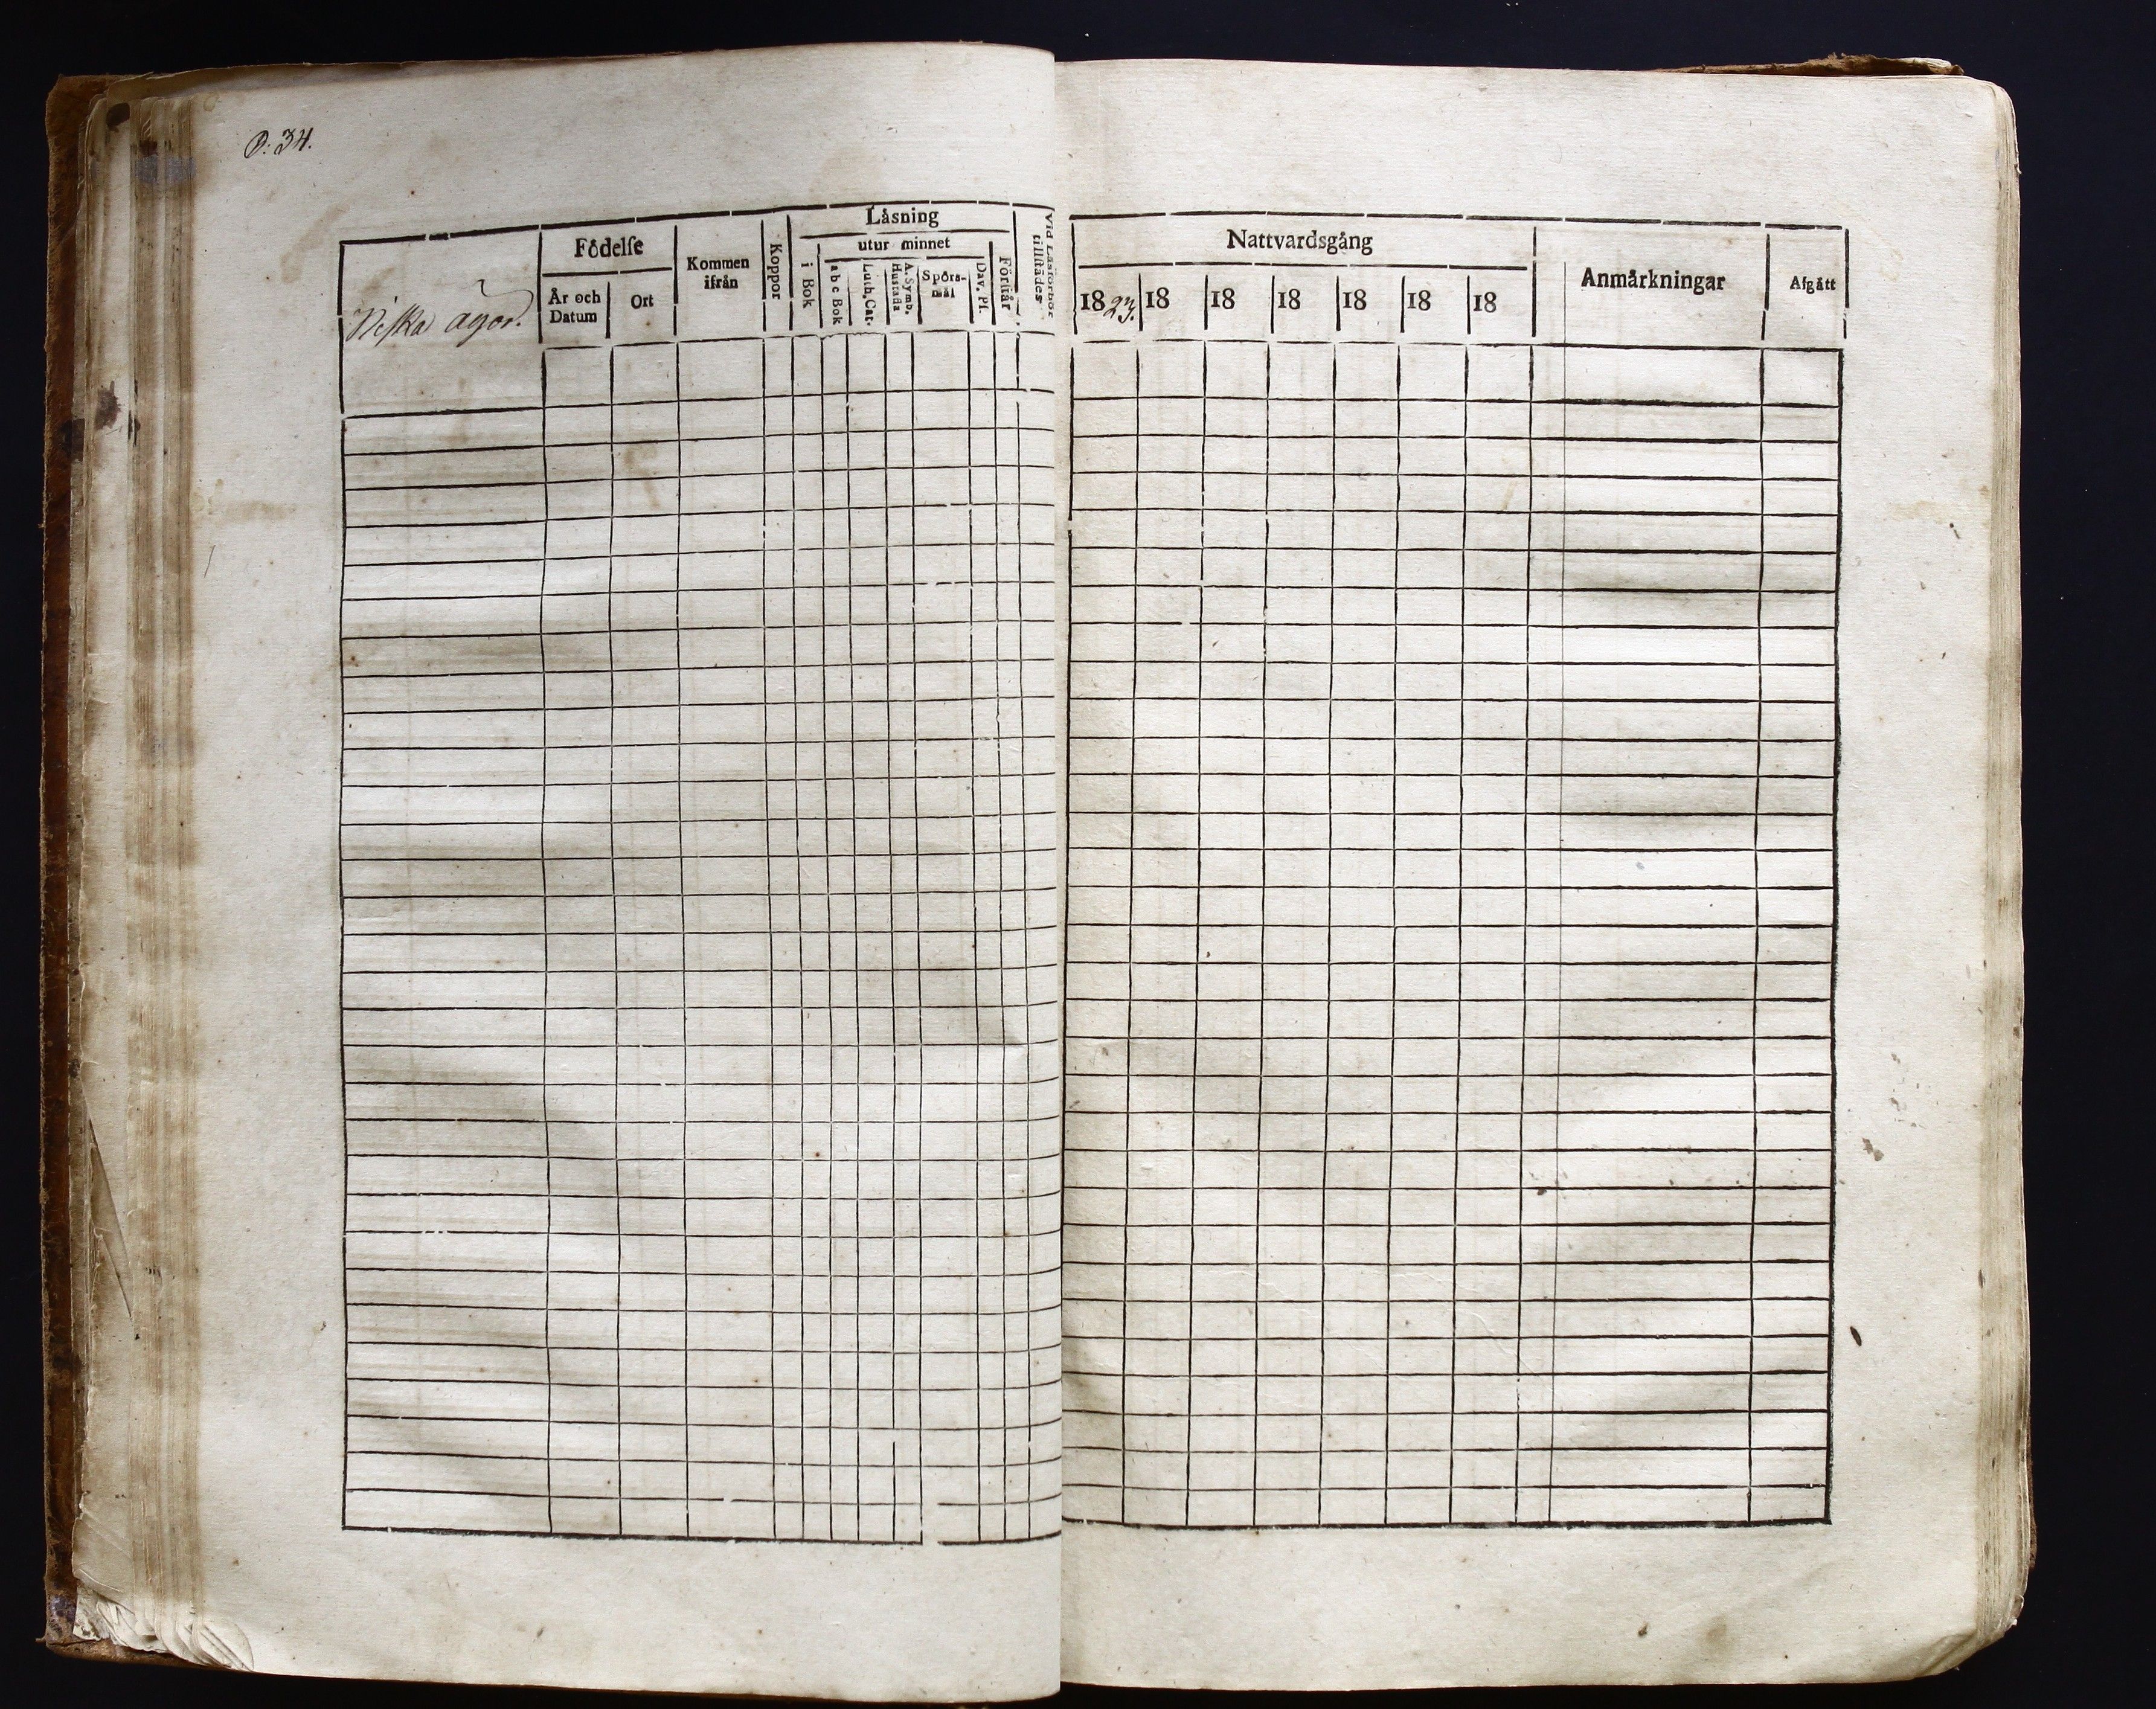 P. 34.
Viska ägor.
Födelse
År och Datum
Ort
Kommen ifrån
Koppor
Läsning
i Bok
utur minnet
a b c Bok
Luth. Cat.
A. Symb. Hustafla
Spörsmål
Dav. Ps.
Förstår
Vid Läsförhör tillstädes
Nattvardsgång
1823. 18 18 18 18 18 18
Anmärkningar
Afgått